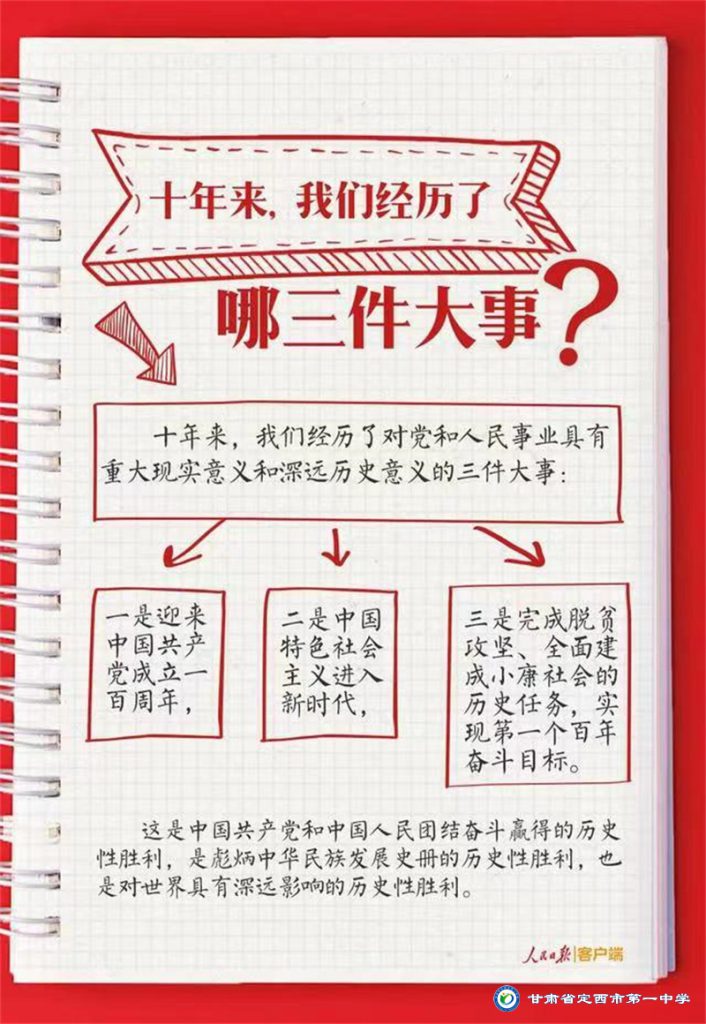 十年来,我们经历了
哪三件大事?
十年来，我们经历了对党和人民事业具有
重大现实意义和深远历史意义的三件大事：
一是迎来
中国共产
党成立一
百周年，
二是中国
特色社会
主义进入
新时代，
三是完成脱贫
攻坚、全面建
成小康社会的
历史任务，实
现第一个百年
奋斗目标。
这是中国共产党和中国人民团结奋斗赢得的历史
性胜利，是彪炳中华民族发展史册的历史性胜利，也
是对世界具有深远影响的历史性胜利。
人民日报|客户端
甘肃省定西市第一中学